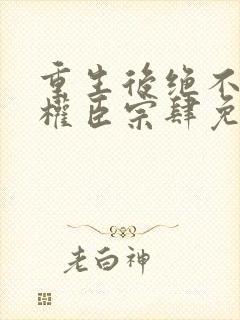 重生後绝不
權臣宗肆免
老白神